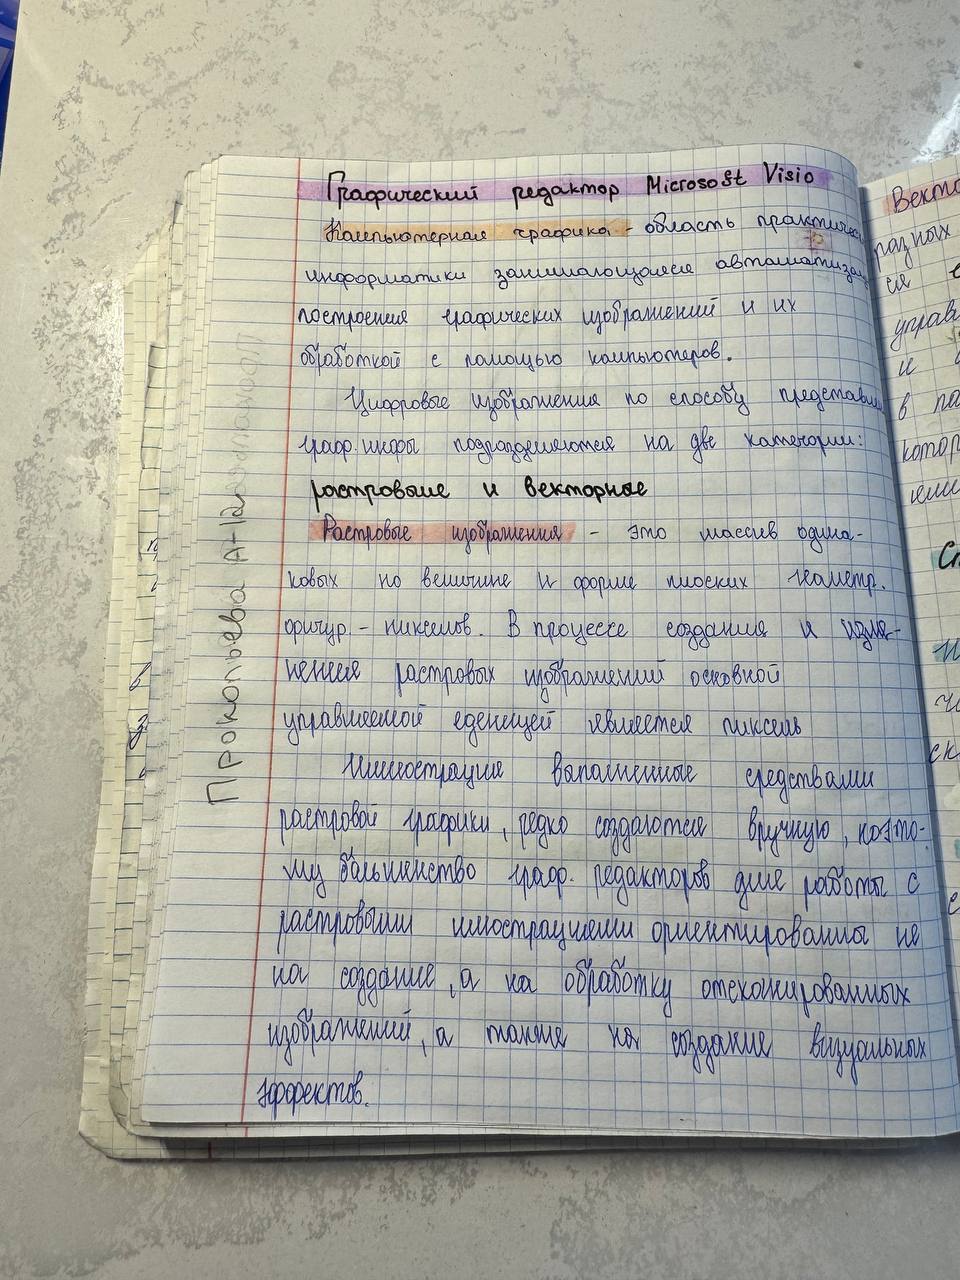 Графический редактор Microsoft Visio
Компьютерная графика - область практичес
информатики занимающаяся автоматизац
построения графических изображений и их
обработкой с помощью компьютеров.
Цифровые изображения по способу представл
граф. инфы подразделяются на две категории:
растровые и векторные
Растровые изображения - это массив одина-
ковых по величине и форме плоских геометр.
фигур - пикселов. В процессе создания и изме-
нения растровых изображений основной
управляемой еденицей является пиксель
Иллюстрация выполненные средствами
растровой графики, редко создаются вручную, поэто-
му большенство граф. редакторов для работы с
растровыми иллюстрациями ориентированны не
на создание, а на обработку отсканированных
изображений, а также на создание визуальных
эффектов.
Прокопьева А-12
Векто
разных
ся
управ
и
в па
котор
ями